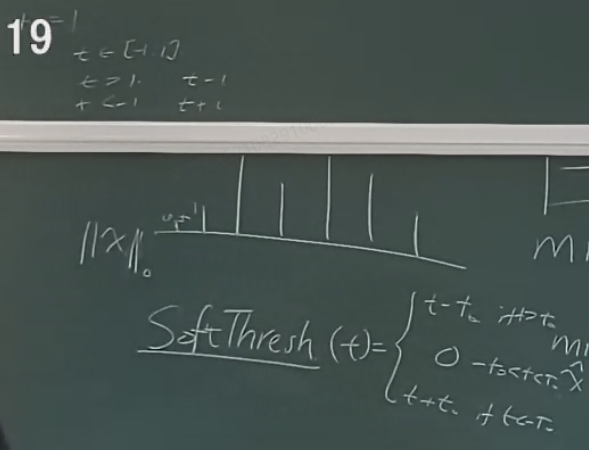 19
t = 1
t ∈ [-1, 1]
t > 1. t-1
t < -1 t+1
||x||₀
SoftThresh (t) = { t - t₀ if t > t₀
0 -t₀ < t < t₀
t + t₀ if t < -t₀
x̂